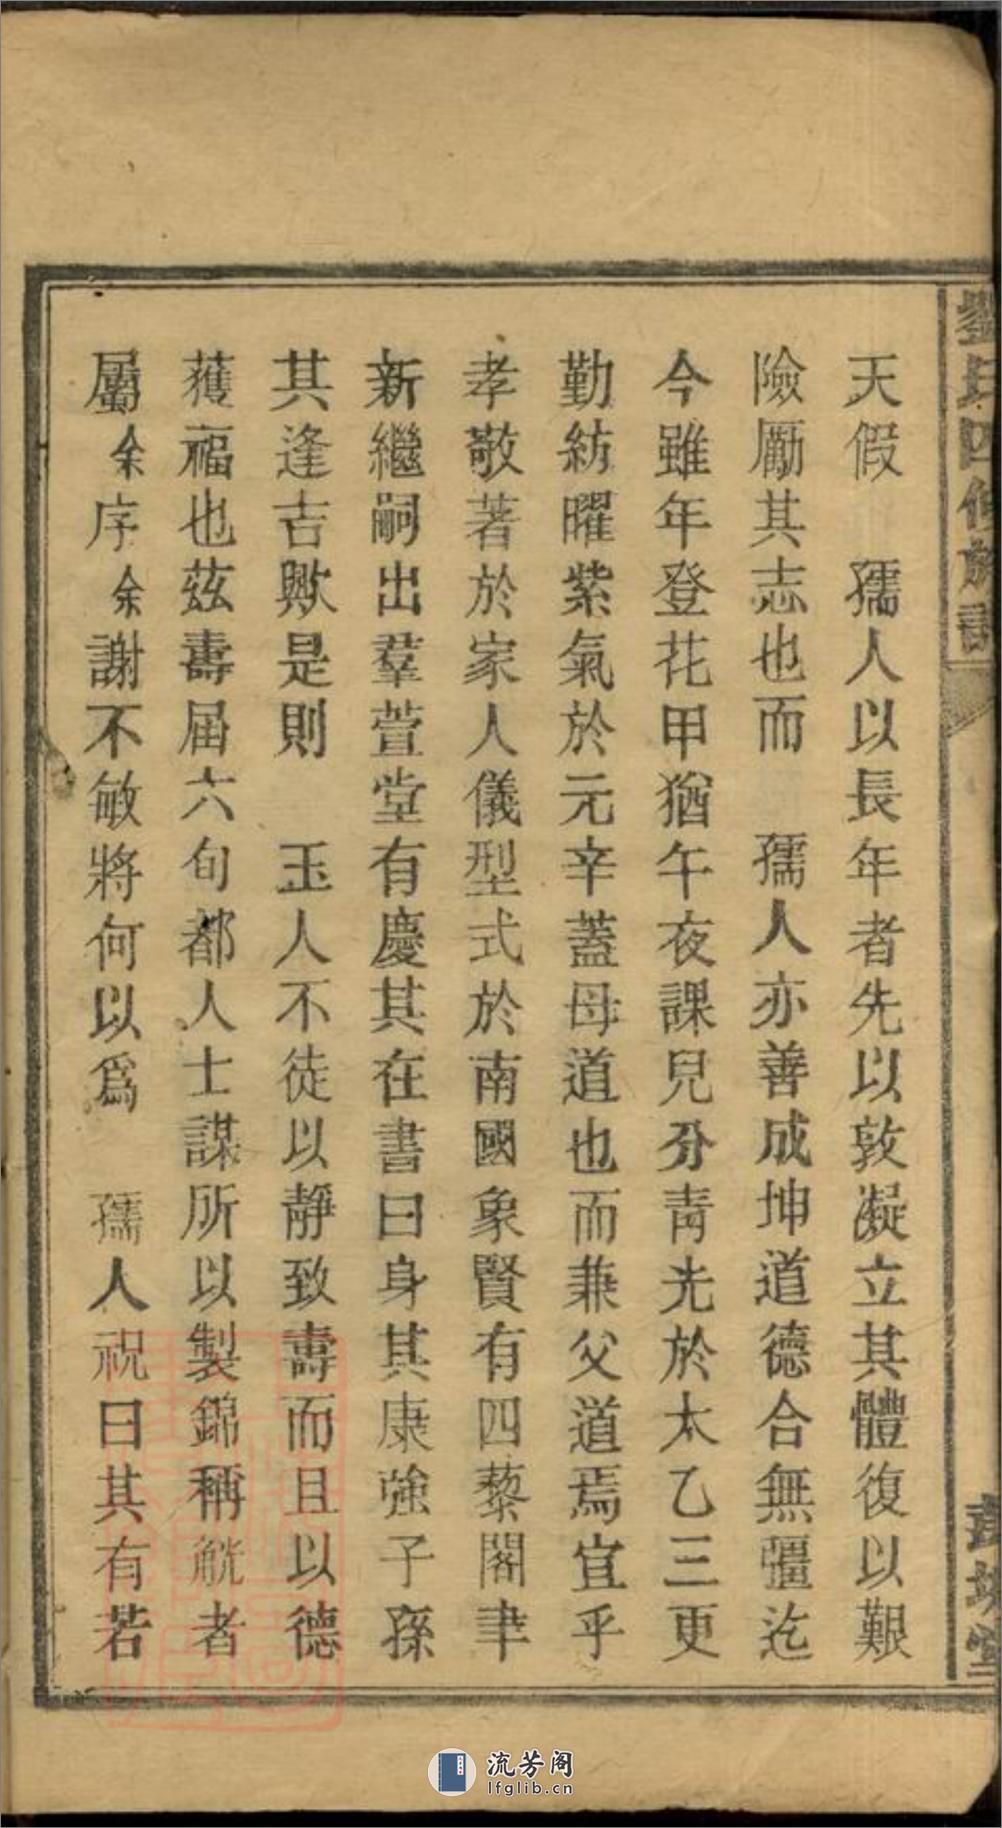 劉氏四修族譜
天假　孺人以長年者先以敦凝立其體復以艱
險勵其志也而　孺人亦善成坤道德合無疆迄
今雖年登花甲猶午夜課兒分靑光於太乙三更
勤紡曜紫氣於元辛蓋母道也而兼父道焉宜乎
孝敬著於家人儀型式於南國象賢有四藜閣聿
新繼嗣出羣萱堂有慶其在書曰身其康強子孫
其逢吉歟是則　玉人不徒以靜致壽而且以德
獲福也茲壽届六旬都人士謀所以製錦稱觥者
屬余序余謝不敏將何以爲　孺人祝曰其有若
流芳阁
lfglib.cn